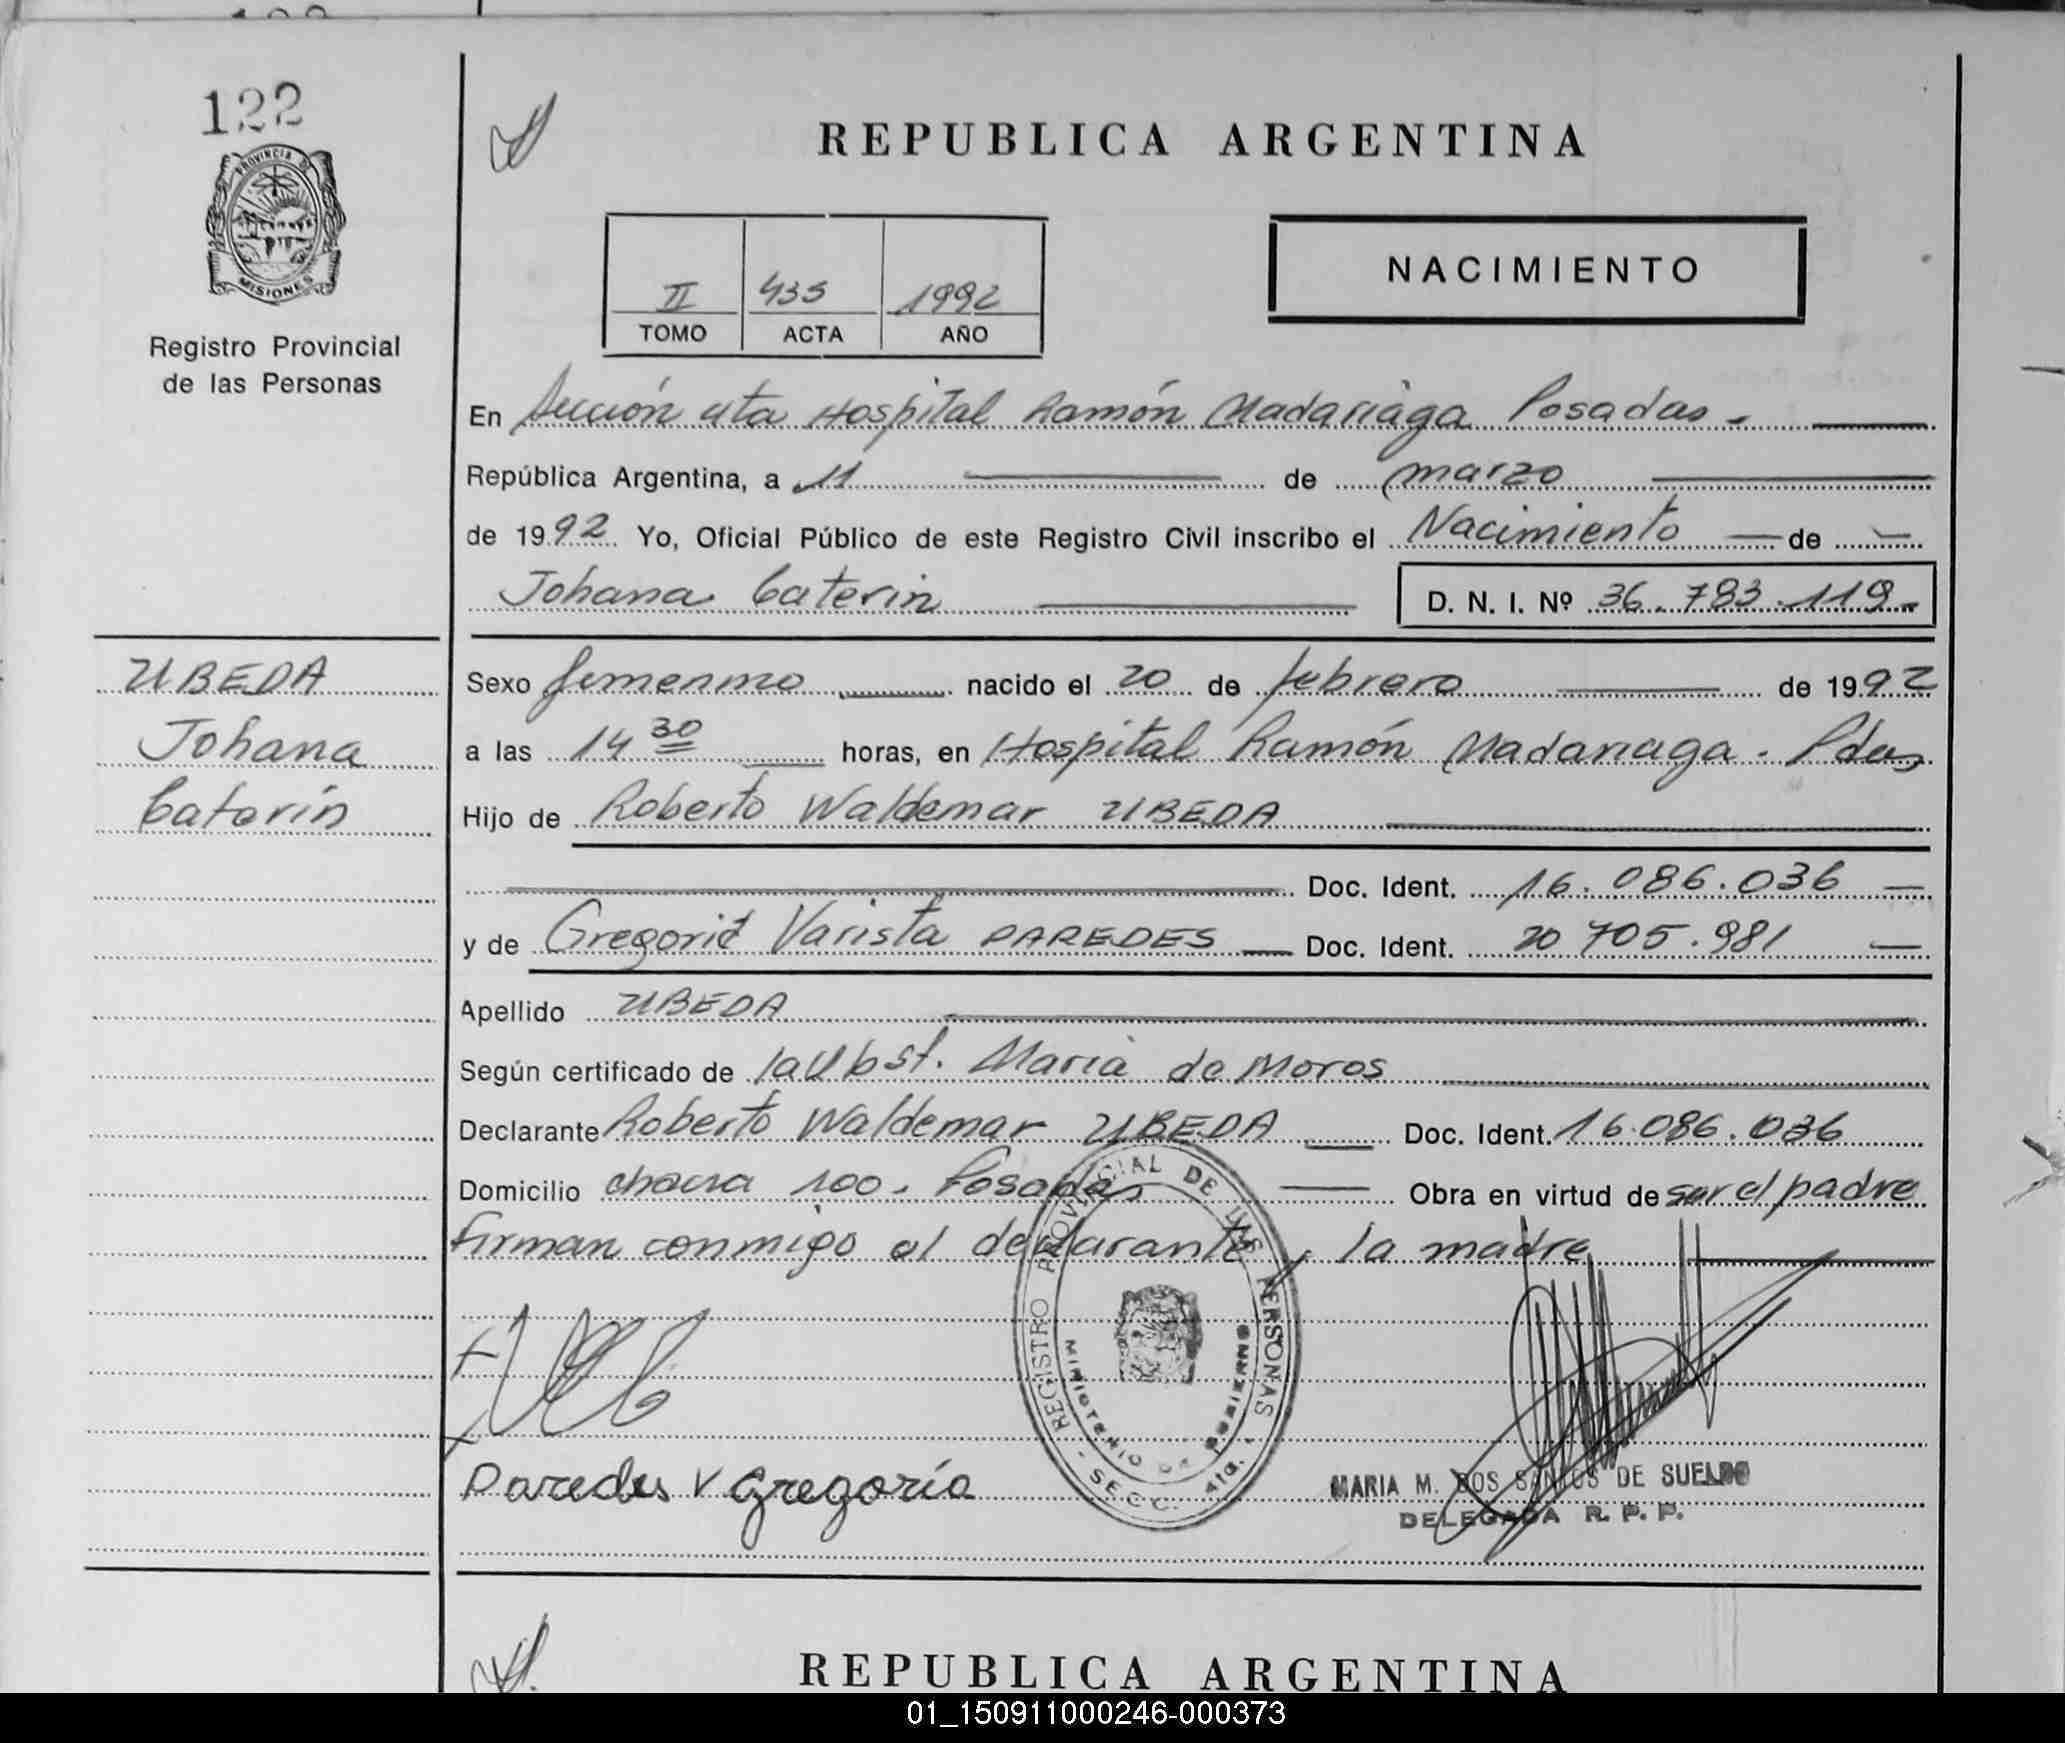 122
PROVINCIA DE
MISIONES
Registro Provincial
de las Personas
REPUBLICA ARGENTINA
II 435 1992
TOMO ACTA AÑO
NACIMIENTO
En Sección 4ta Hospital Ramón Madariaga Posadas.
República Argentina, a 11 de marzo
de 1992 Yo, Oficial Público de este Registro Civil inscribo el Nacimiento de
Johana Caterin D. N. I. Nº 36.783.119
UBEDA
Johana
Caterin
Sexo femenino nacido el 20 de febrero de 1992
a las 14 30 horas, en Hospital Ramón Madariaga. Pdas
Hijo de Roberto Waldemar UBEDA
Doc. Ident. 16.086.036
y de Gregoria Varista PAREDES Doc. Ident. 20 705.981
Apellido UBEDA
Según certificado de la Obst. Maria de Moros
Declarante Roberto Waldemar UBEDA Doc. Ident. 16.086.036
Domicilio chacra 100. Posadas Obra en virtud de ser el padre
Firman conmigo el declarante y la madre
REGISTRO PROVINCIAL DE LAS PERSONAS
MINISTERIO DE GOBIERNO
- SECC. 4ta. -
Paredes V Gregoría
MARIA M. DOS SANTOS DE SUELDO
DELEGADA R. P. P.
REPUBLICA ARGENTINA
01_150911000246-000373